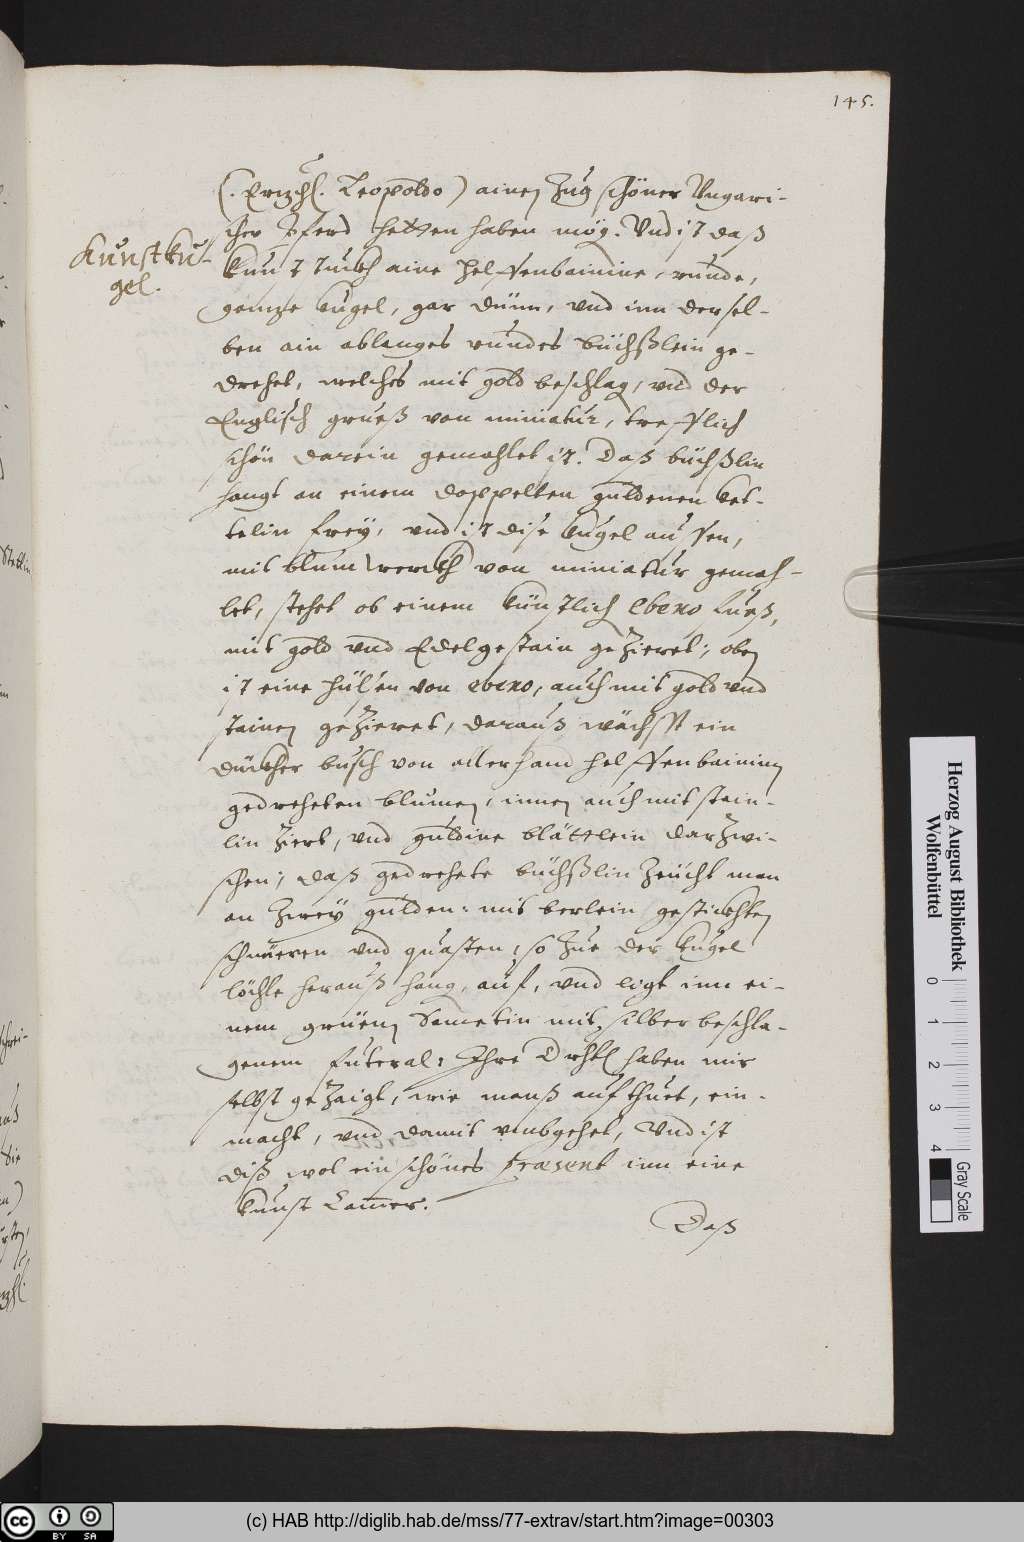 145.
(. Ertzh. Leopoldo) ainen Zug schöner Vngari-
scher Pferd hetten haben mög. Vnd ist daß
Kunstku-
gel.
kunststuckh aine helffenbainine, runde,
gantze kugel, gar dünn, vnd inn dersel-
ben ain ablanges rundes büchßlein ge-
drehet, welches mit gold beschlag, vnd der
Englisch grueß von miniatur, trefflich
schön darein gemahlet ist. Daß büchßlin
hangt an einem doppelten guldenen ket-
telin frey, vnd ist dise kugel aussen,
mit blumwerckh von miniatur gemah-
let, stehet ob einem künstlich ebeno fueß,
mit gold vnd Edelgestain geZieret; oben
ist eine hülsen von ebeno, auch mit gold vnd
stainen geZieret, darauß wächsst ein
dückher busch von allerhand helffenbainin
gedreheten blumen, innen auch mit stain-
lin Ziert, vnd guldine blättlein darZwi-
schen; daß gedrehete büchßlin Zeücht man
an Zwey gulden: mit berlein gestickhten
schnüeren vnd quasten, so Zue der kugel
löchle herauß hang, auf, vnd ligt inn ei-
nem grüen Sametin mit silber beschla-
genem futeral: Ihre Drhtl haben mir
selbst geZaigt, wie manß aufthuet, ein-
macht, vnd damit vmbgehet, Vnd ist
diß wol ein schönes praesent inn eine
kunst Camer.
Daß
Stettin
Herzog August Bibliothek
Wolfenbüttel
0 1 2 3 4
Gray Scale
cc BY SA
(c) HAB http://diglib.hab.de/mss/77-extrav/start.htm?image=00303